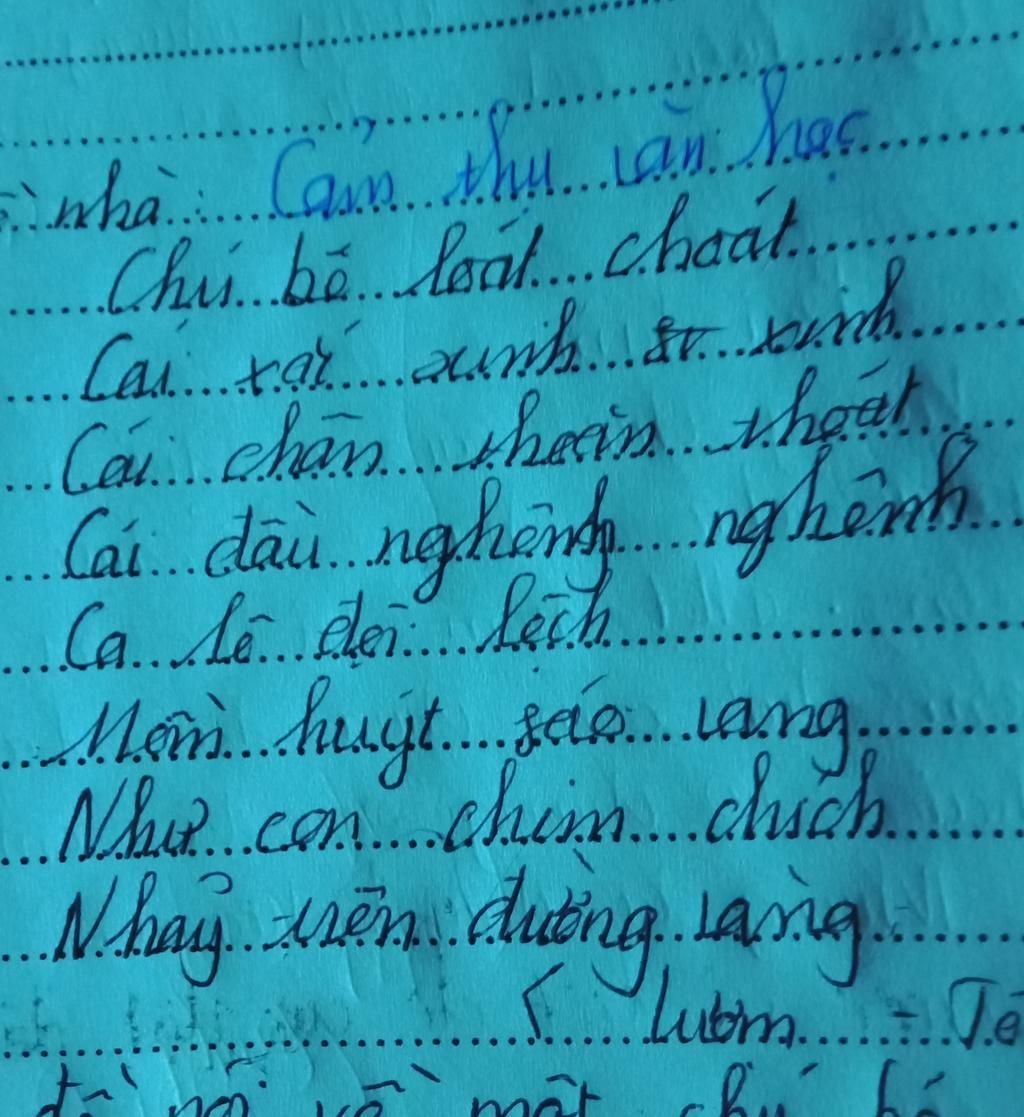 nhà: Cảm thụ văn học
Chú bé loắt choắt
Cái xắc xinh xinh
Cái chân thoăn thoắt
Cái đầu nghênh nghênh
Ca lô đội lệch
Mồm huýt sáo vang
Như con chim chích
Nhảy trên đường vàng
( Lượm - Tố
một chú bé